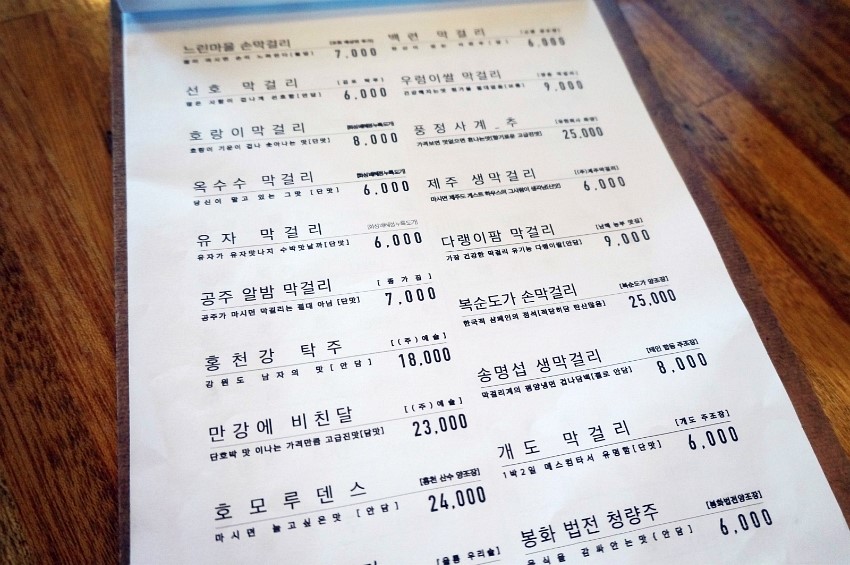 느린마을 손막걸리
7,000
선호 막걸리
6,000
호랑이막걸리
8,000
호랑이 기운이 겁나 솟아나는 맛[단맛]
옥수수 막걸리
6,000
당신이 알고 있는 그맛 [단맛]
유자 막걸리
6,000
유자가 유자맛나지 수박맛날까[단맛]
공주 알밤 막걸리
7,000
공주가 마시면 막걸리는 절대 아님 [단맛]
홍천강 탁주
[(주)예술]
18,000
강원도 남자의 맛 [안담]
만강에 비친달
[(주)예술]
23,000
단호박 맛 이나는 가격만큼 고급진맛[담맛]
호모루덴스
[홍천 산수 양조장]
24,000
마시면 놀고싶은맛 [안담]
[울통 우리술]
백련 막걸리
6,000
우렁이쌀 막걸리
9,000
풍정사계_추
25,000
제주 생막걸리
[(주)제주막걸리]
6,000
다랭이팜 막걸리
9,000
가장 건강한 막걸리 유기농 다랭이팜[안담]
복순도가 손막걸리
[복순도가 양조장]
25,000
한국적 샴페인의 정석[적당히담 탄산많음]
송명섭 생막걸리
[태인 합동 주조장]
8,000
막걸리계의 평양냉면 겁나담백[별로 안담]
개도 막걸리
[개도 주조장]
6,000
1박2일 매스컴타서 유명함[단맛]
봉화 법전 청량주
[봉화법전양조장]
6,000
음식을 감싸안는맛(안담]